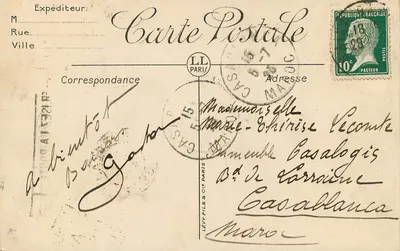 Expéditeur:
M
Rue
Ville
Carte Postale
LL
PARIS
Correspondance
Adresse
RÉPUBLIQUE FRANÇAISE
10c
PASTEUR
CASA
15
5-7
MAROC
à bientôt
Gaston
Mademoiselle
Marie-Thérèse Lecomte
Immeuble Casalogis
Bd. de Lorraine
Casablanca
Maroc
LÉVY FILS & Cie PARIS